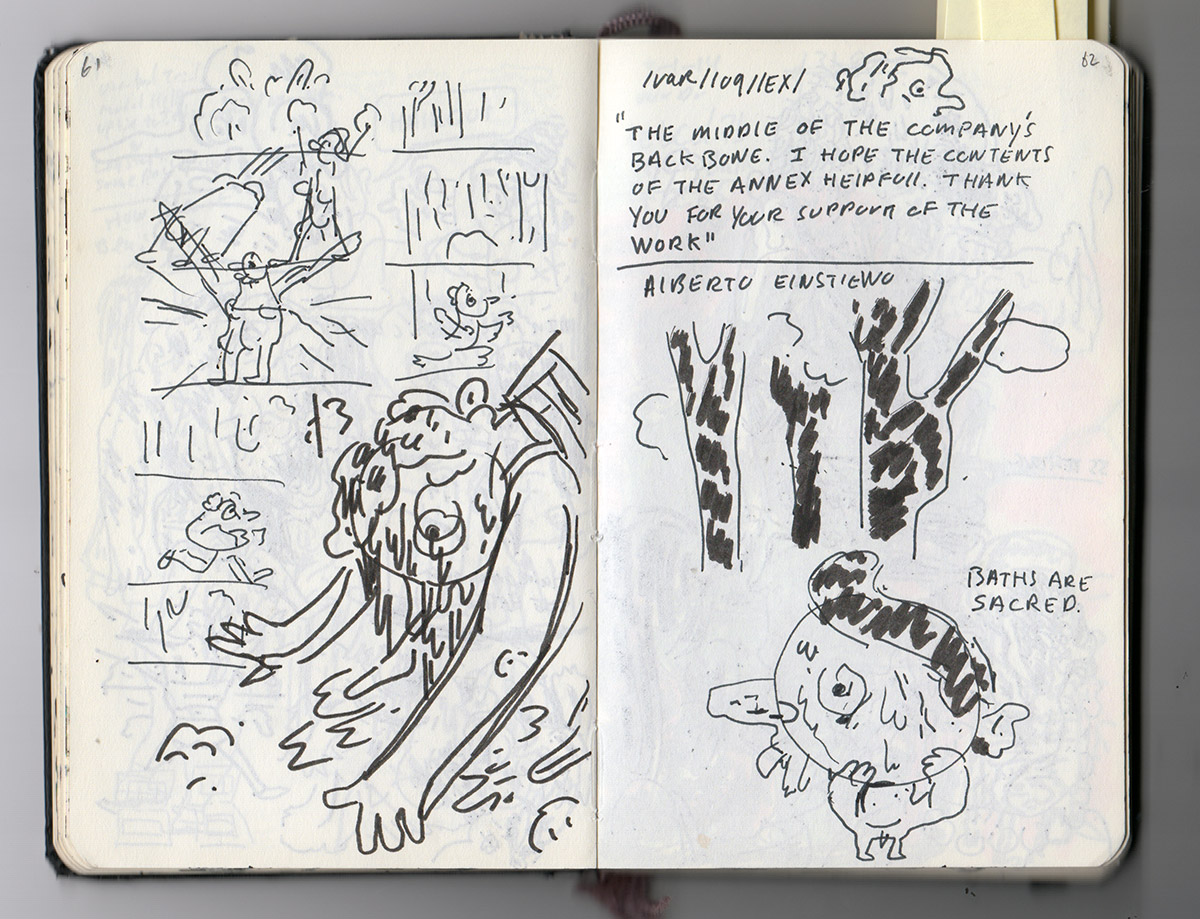 61
62
/VAR/109/IEX/
"THE MIDDLE OF THE COMPANY'S
BACKBONE. I HOPE THE CONTENTS
OF THE ANNEX HELPFULL. THANK
YOU FOR YOUR SUPPORT OF THE
WORK"
ALBERTO EINSTIEWO
BATHS ARE
SACRED.